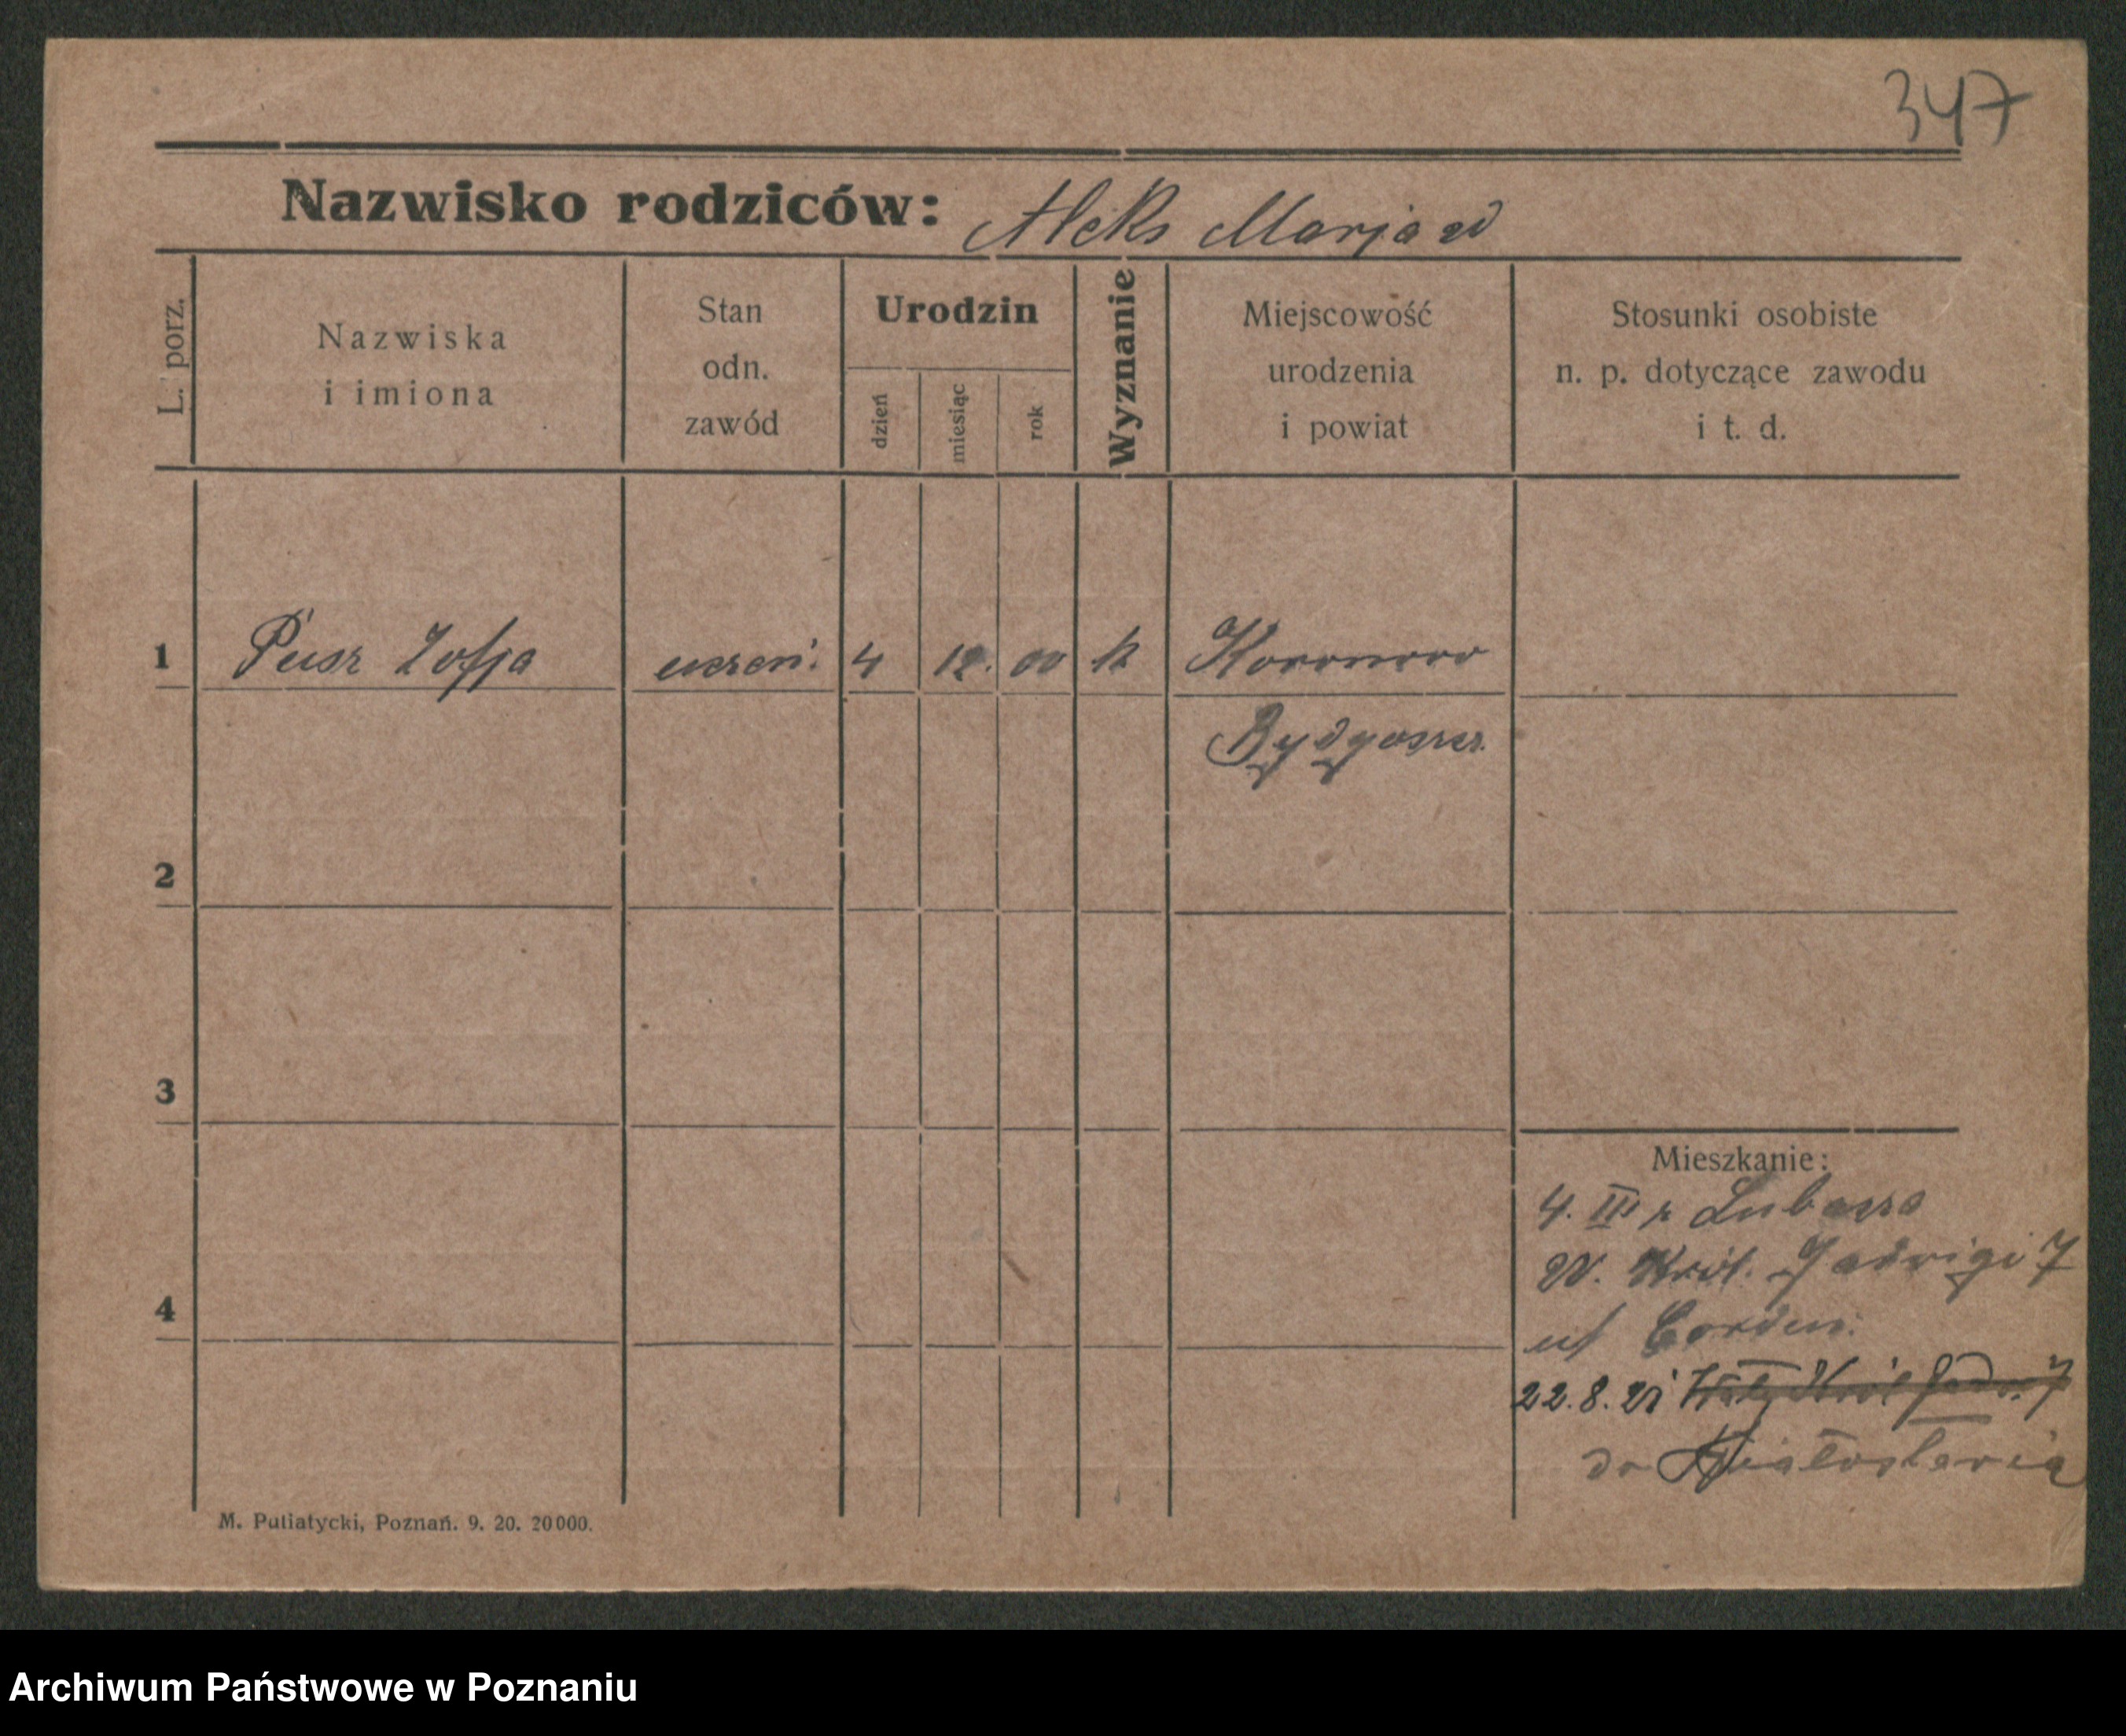 347
Nazwisko rodziców: Aleks Marja
L. porz.
Nazwiska
i imiona
Stan
odn.
zawód
Urodzin
dzień
miesiąc
rok
Wyznanie
Miejscowość
urodzenia
i powiat
Stosunki osobiste
n. p. dotyczące zawodu
i t. d.
1 Pusz Zofja uczeń. 4 12. 00 k Koronowo
Bydgoszcz.
2
3
Mieszkanie:
4. III z Lubasza
W. Król. Jadwigi 7
u/
4
22.8.21 Jadw. 7
do
M. Putiatycki, Poznań. 9. 20. 20000.
Archiwum Państwowe w Poznaniu